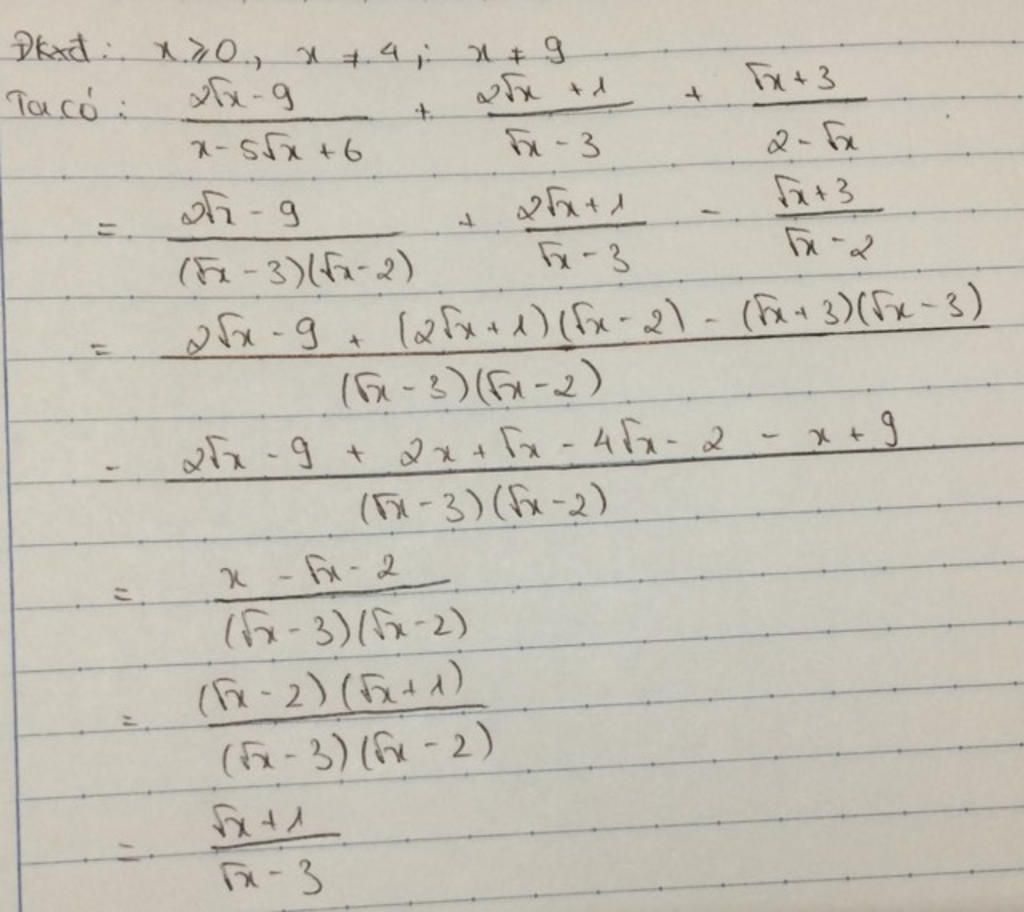 ĐKXĐ: x ≥ 0, x ≠ 4; x ≠ 9
Ta có: (2√x - 9)/(x - 5√x + 6) + (2√x + 1)/(√x - 3) + (√x + 3)/(2 - √x)
= (2√x - 9)/((√x - 3)(√x - 2)) + (2√x + 1)/(√x - 3) - (√x + 3)/(√x - 2)
= (2√x - 9 + (2√x + 1)(√x - 2) - (√x + 3)(√x - 3))/((√x - 3)(√x - 2))
= (2√x - 9 + 2x + √x - 4√x - 2 - x + 9)/((√x - 3)(√x - 2))
= (x - √x - 2)/((√x - 3)(√x - 2))
= ((√x - 2)(√x + 1))/((√x - 3)(√x - 2))
= (√x + 1)/(√x - 3)